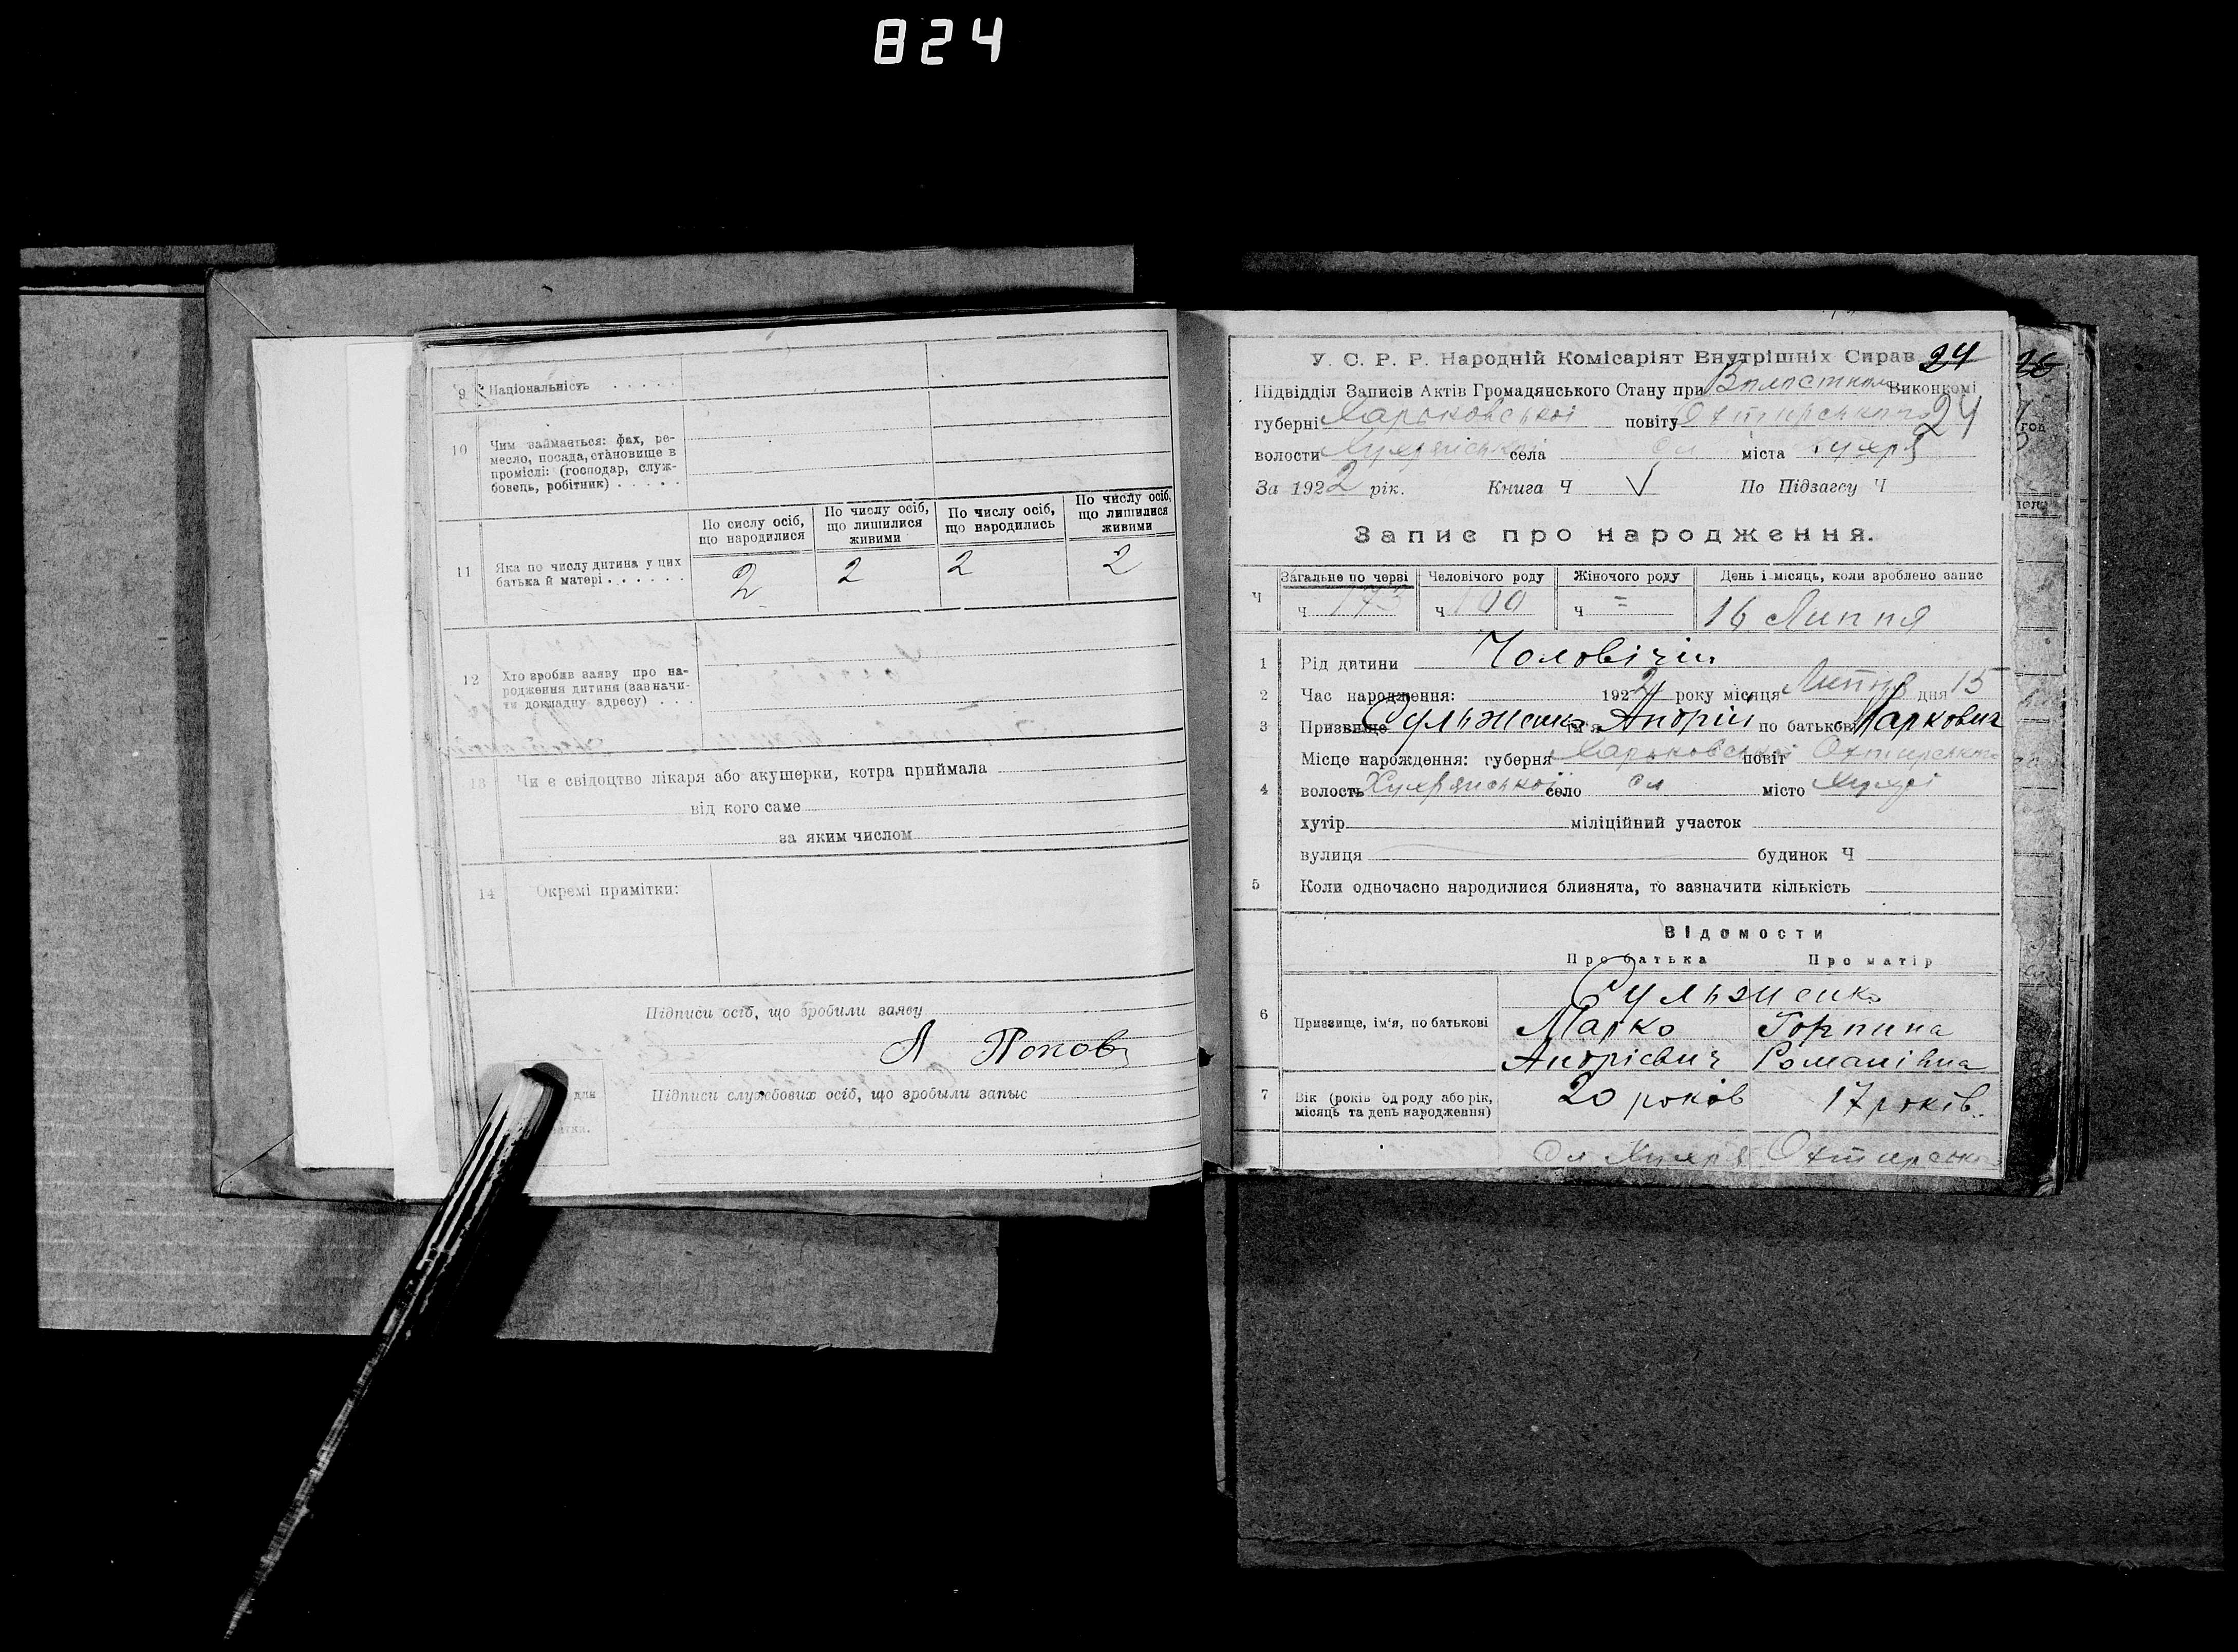 824
9 Національність . . . . .
10 Чим займається: фах, ре-
месло, посада, становище в
проміслі: (господар, служ-
бовець, робітник) . . . . .
По сислу осіб,
що народилися
По числу осіб,
що лишилися
живими
По числу осіб,
що народились
По числу осіб,
що лишилися
живими
11 Яка по числу дитина у цих
батька й матері . . . . . .
2 2 2 2
12 Хто зробив заяву про на-
родження дитини (зазначи-
ти докладну адресу) . . .
13 Чи є свідоцтво лікаря або акушерки, котра приймала
від кого саме
за яким числом
14 Окремі примітки:
Підписи осіб, що зробили заяву
А Попов
для
Підписи службових осіб, що зробыли запыс
У. С. Р. Р. Народній Комісаріят Внутрішніх Справ 24
Підвідділ Записів Актів Громадянського Стану при Волостном Виконкомі
губерні Харьковської повіту Охтирського 24
волости села сл міста Хухря
За 1922 рік. Книга Ч V По Підзагсу Ч
Запис про народження.
Загальне по черві Человічого роду Жіночого роду День і місяць, коли зроблено запис
Ч ч 173 ч 100 ч = 16 Липня
1 Рід дитини Чоловічий
2 Час народження: 1922 року місяця Липня дня 15
3 Призвище ім'я Андрій по батькові Маркович
Місце нарождення: губерня Харьковської повіт Охтирського
4 волость село сл місто Хухрі
хутір міліційний участок
вулиця будинок Ч
5 Коли одночасно народилися близнята, то зазначити кількість
Відомости
Про батька Про матір
6 Призвище, ім'я, по батькові
Марко Горпина
Андрієвич Романівна
7 Вік (років од роду або рік,
місяць та день народження)
20 років 17 років.
Сл Хухря Охтирсько